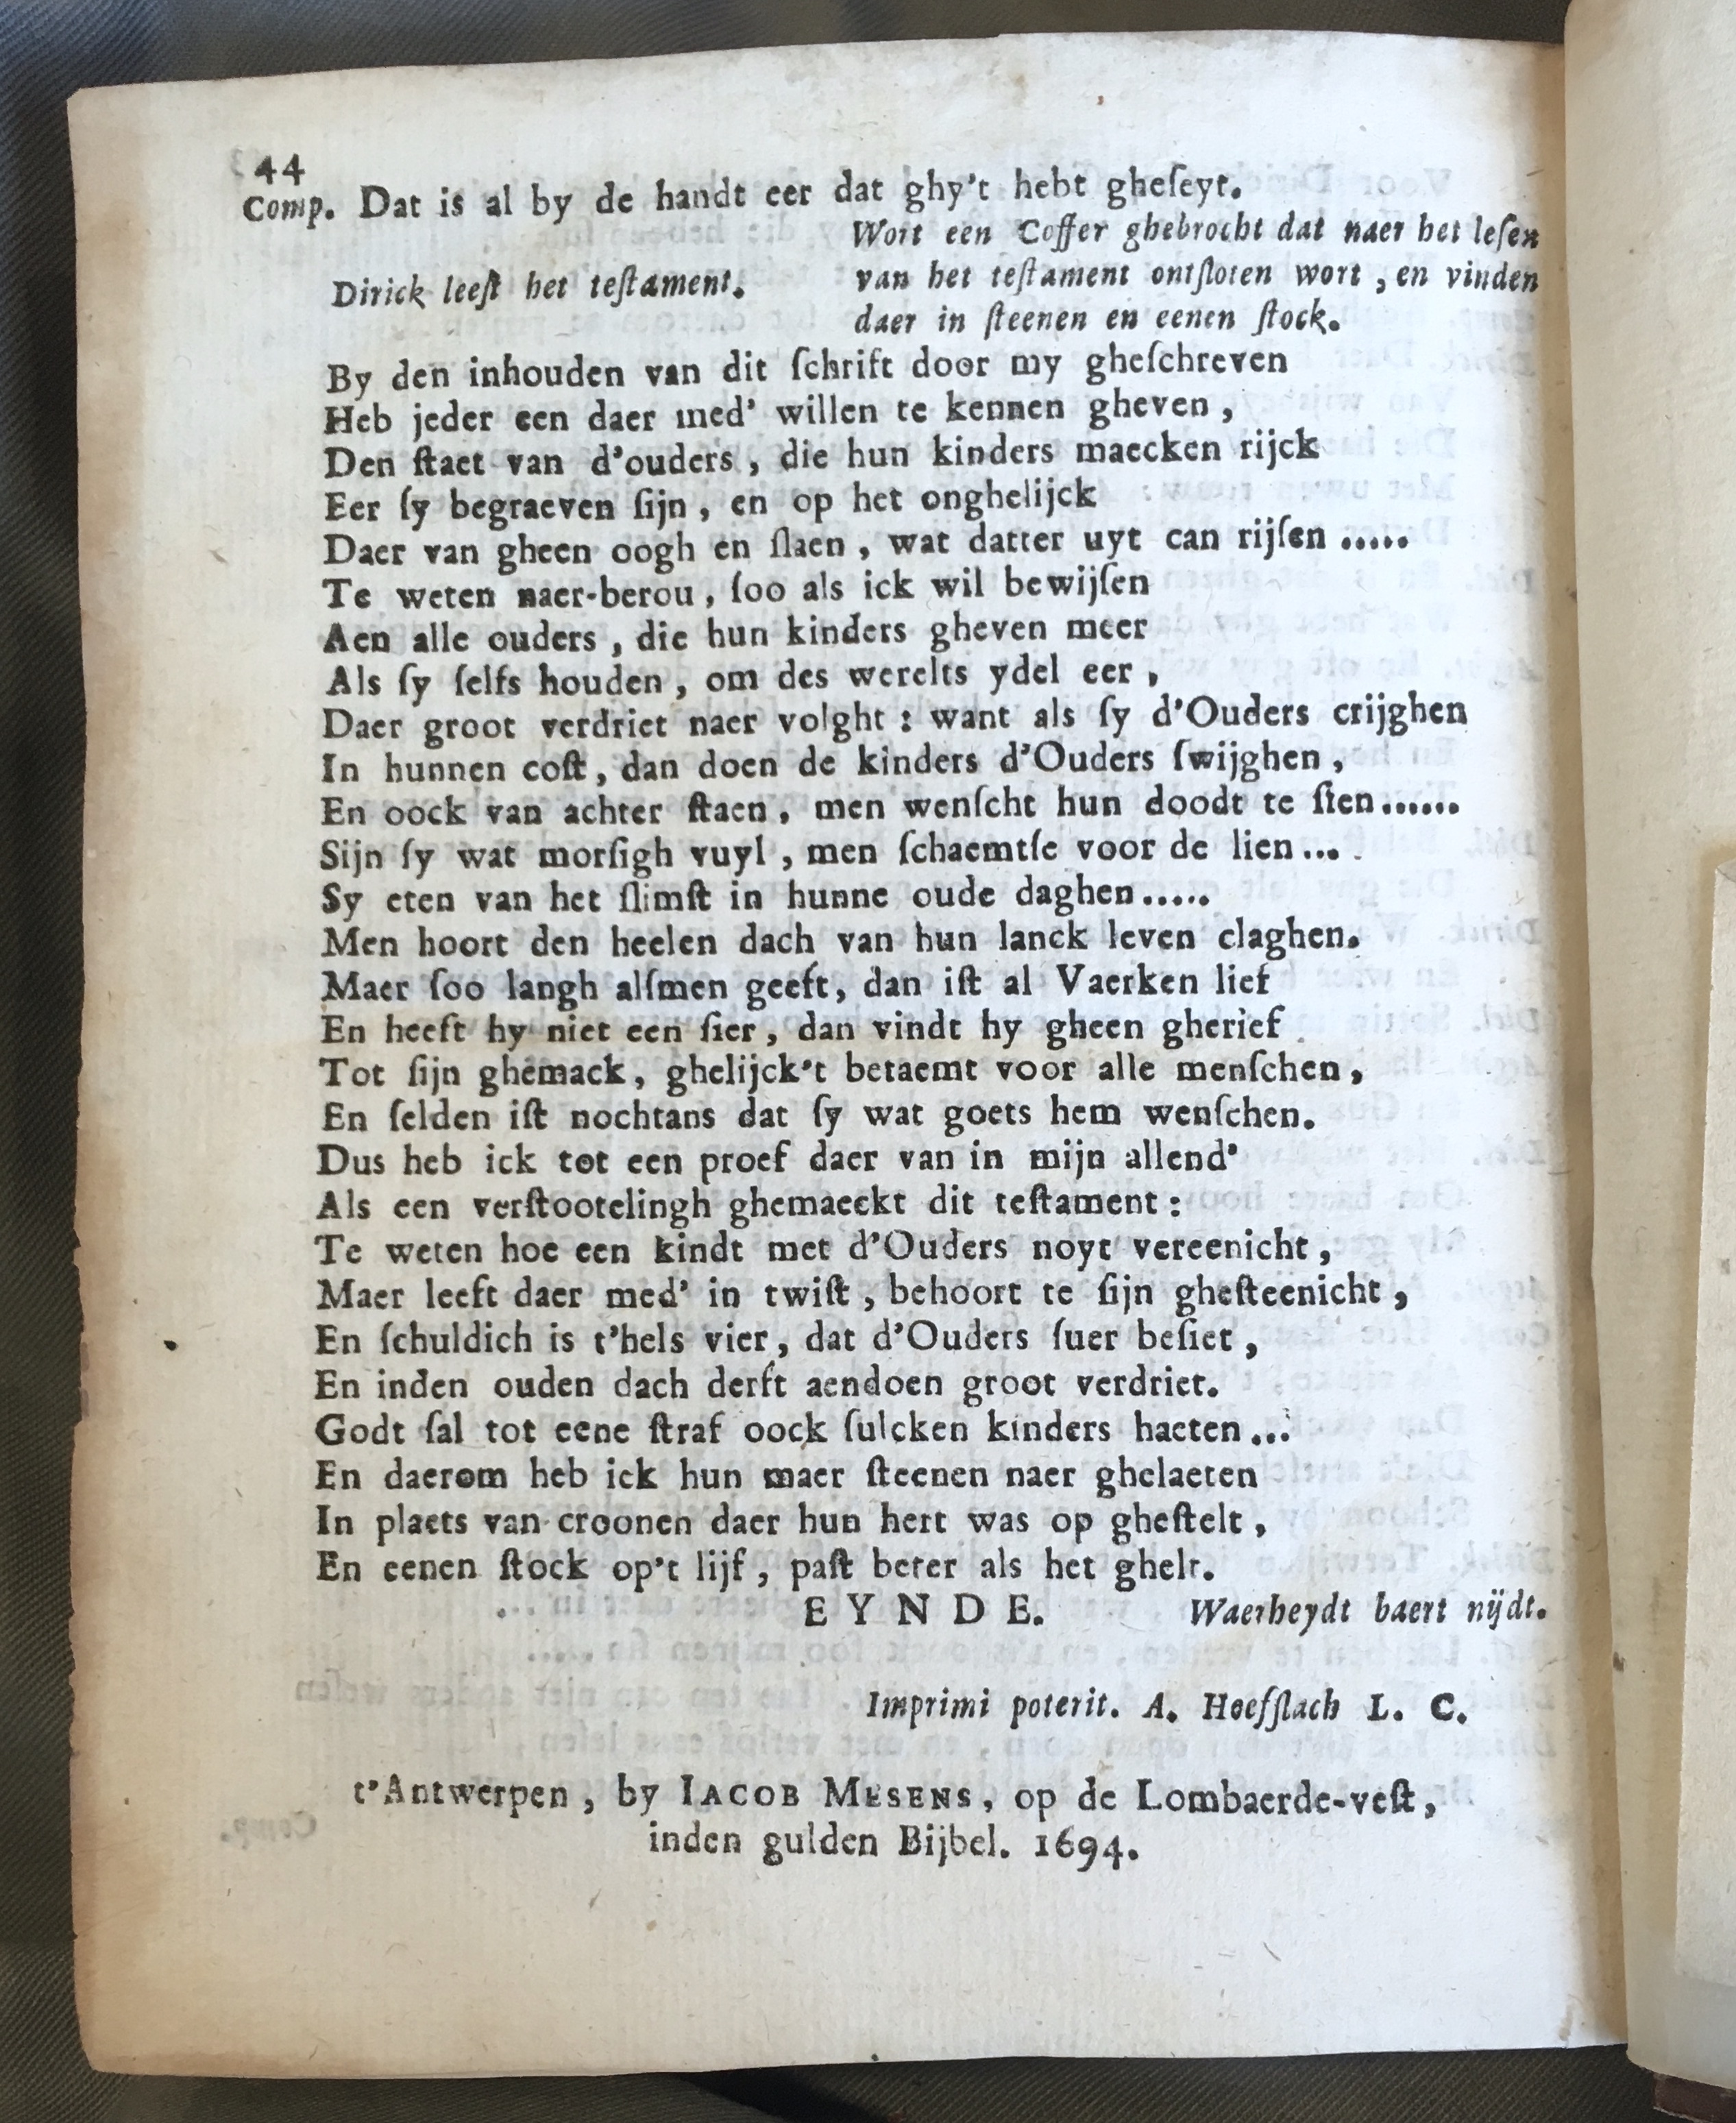 44
Comp. Dat is al by de handt eer dat ghy't hebt gheſeyt.
Wort een Coffer ghebrocht dat naer het leſen
Dirick leeſt het teſtament. van het teſtament ontſloten wort, en vinden
daer in ſteenen en eenen ſtock.
By den inhouden van dit ſchrift door my gheſchreven
Heb jeder een daer med' willen te kennen gheven,
Den ſtaet van d'ouders, die hun kinders maecken rijck
Eer ſy begraeven ſijn, en op het onghelijck
Daer van gheen oogh en ſlaen, wat datter uyt can rijſen .....
Te weten naer-berou, ſoo als ick wil bewijſen
Aen alle ouders, die hun kinders gheven meer
Als ſy ſelfs houden, om des werelts ydel eer,
Daer groot verdriet naer volght: want als ſy d'Ouders crijghen
In hunnen coſt, dan doen de kinders d'Ouders ſwijghen,
En oock van achter ſtaen, men wenſcht hun doodt te ſien......
Sijn ſy wat morſigh vuyl, men ſchaemtſe voor de lien... .
Sy eten van het ſlimſt in hunne oude daghen.....
Men hoort den heelen dach van hun lanck leven claghen.
Maer ſoo langh alſmen geeft, dan iſt al Vaerken lief
En heeft hy niet een ſier, dan vindt hy gheen gherief
Tot ſijn ghemack, ghelijck't betaemt voor alle menſchen,
En ſelden iſt nochtans dat ſy wat goets hem wenſchen.
Dus heb ick tot een proef daer van in mijn allend'
Als een verſtootelingh ghemaeckt dit teſtament:
Te weten hoe een kindt met d'Ouders noyt vereenicht,
Maer leeft daer med' in twiſt, behoort te ſijn gheſteenicht,
En ſchuldich is t'hels vier, dat d'Ouders ſuer beſiet,
En inden ouden dach derft aendoen groot verdriet.
Godt ſal tot eene ſtraf oock ſulcken kinders haeten...
En daerom heb ick hun maer ſteenen naer ghelaeten
In plaets van croonen daer hun hert was op gheſtelt,
En eenen ſtock op't lijf, paſt beter als het ghelt.
EYNDE. Waerheydt baert nijdt.
Imprimi poterit. A. Hoefſlach L. C.
t'Antwerpen, by IACOB MESENS, op de Lombaerde-veſt,
inden gulden Bijbel. 1694.